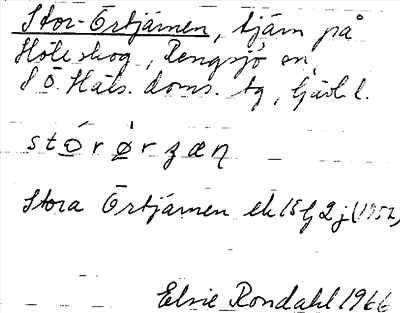 Stor-Örtjärnen, tjärn på
Höle skog, Rengsjö sn,
S Ö. Häls. doms. tg, Gävl. l.
stǿrø̀rzæɳ
Stora Örtjärnen ek 15G 2j (1957)
Elsie Rondahl 1966